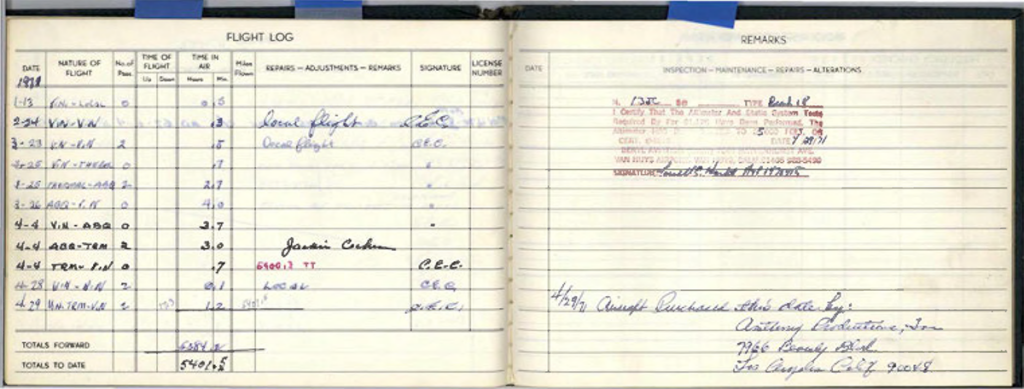 FLIGHT LOG
DATE NATURE OF FLIGHT No. of Pass. TIME OF FLIGHT Up Down TIME IN AIR Hours Min. Miles Flown REPAIRS—ADJUSTMENTS—REMARKS SIGNATURE LICENSE NUMBER
1971
1-13 V.N-LOCAL 0 0.5
2-24 V.N-V.N .3 Local flight C.E.C.
3-23 V.N-V.N 2 Local flight C.E.C.
3-25 0 .7 "
3-25 2 2.7 "
3-26 ABQ-V.N 0 4.0 "
4-4 V.N-ABQ 0 3.7 "
4-4 ABQ-TRM 2 3.0
4-4 TRM-V.N 0 .7 5400.3 TT C.E.C.
4-28 V.N-V.N 2 0.1 LOCAL C.E.C.
4-29 V.N-TRM-V.N 2 1.2 C.E.C.
TOTALS FORWARD 5384.2
TOTALS TO DATE 5401.5
REMARKS
DATE INSPECTION—MAINTENANCE—REPAIRS—ALTERATIONS
TYPE Beech 18
I Certify That The Altimeter And Static System Tests
Required By Far Have Been Performed. The
Altimeter Was TO FT. ON
DATE
VAN NUYS
SIGNATURE
4/29/71 Aircraft Purchased this date by:
Anthony Productions, Inc
7966 Beverly Blvd
Los Angeles Calif 90048